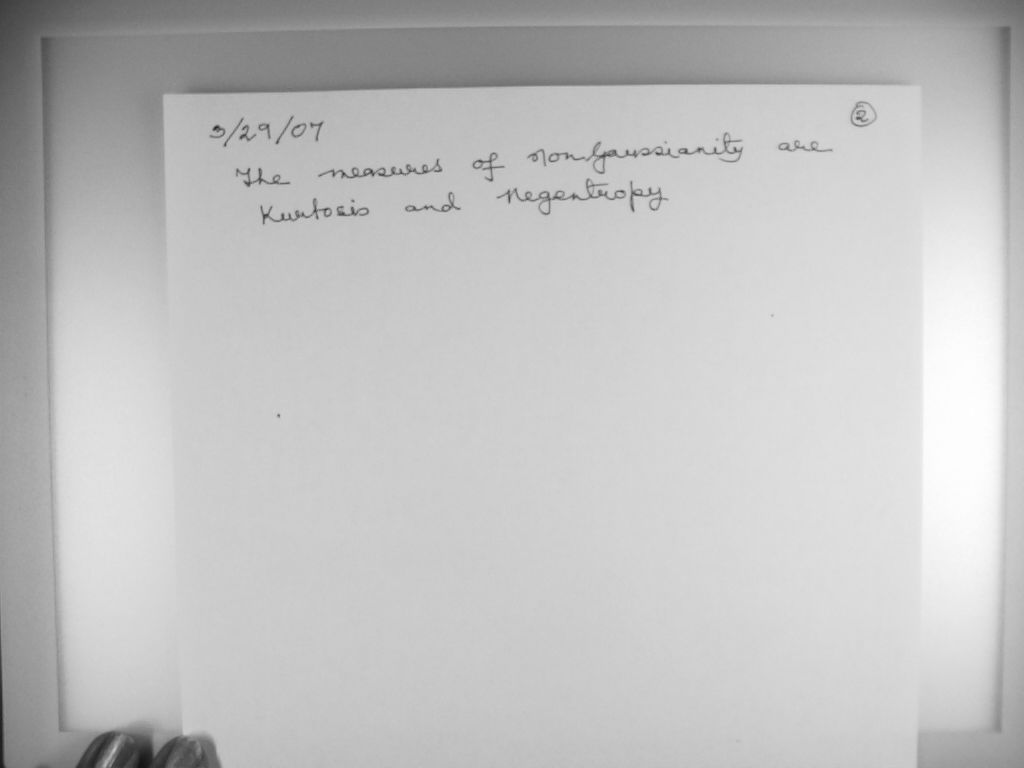 3/29/07 ②
The measures of nonGaussianity are
Kurtosis and Negentropy